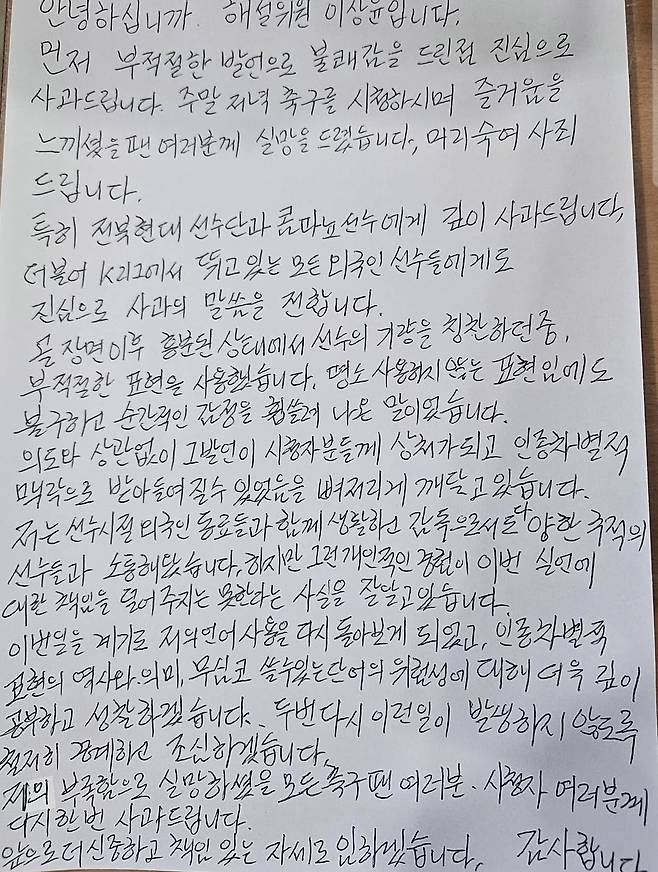 안녕하십니까. 해설위원 이상윤입니다.
먼저 부적절한 발언으로 불쾌감을 드린점 진심으로
사과드립니다. 주말 저녁 축구를 시청하시며 즐거움을
느끼셨을 팬 여러분께 실망을 드렸습니다, 머리숙여 사죄
드립니다.
특히 전북현대 선수단과 콤파뇨선수에게 깊이 사과드립니다,
더불어 K리그에서 뛰고 있는 모든 외국인 선수들에게도
진심으로 사과의 말씀을 전합니다.
골 장면이후 흥분된 상태에서 선수의 기량을 칭찬하던중,
부적절한 표현을 사용했습니다. 평소 사용하지 않는 표현임에도
불구하고 순간적인 감정을 휩쓸려 나온 말이었습니다.
의도와 상관없이 그발언이 시청자분들께 상처가되고 인종차별적
맥락으로 받아들여질수 있었음을 뼈저리게 깨닫고 있습니다.
저는 선수시절 외국인 동료들과 함께 생활하고 감독으로서도 다양한 국적의
선수들과 소통해왔습니다, 하지만 그런개인적인 경험이 이번 실언에
대한 책임을 덜어 주지는 못한다는 사실을 잘알고있습니다.
이번일을 계기로 저의언어 사용을 다시 돌아보게 되었고, 인종차별적
표현의 역사와 의미, 무심코 쓸수있는단어의 위험성에 대해 더욱 깊이
공부하고 성찰하겠습니다. 두번다시 이런일이 발생하지 않도록
철저히 경계하고 조심하겠습니다.
저의 부족함으로 실망하셨을 모든축구팬 여러분. 시청자 여러분께
다시한번 사과드립니다.
앞으로 더 신중하고 책임 있는 자세로 임하겠습니다, 감사합니다